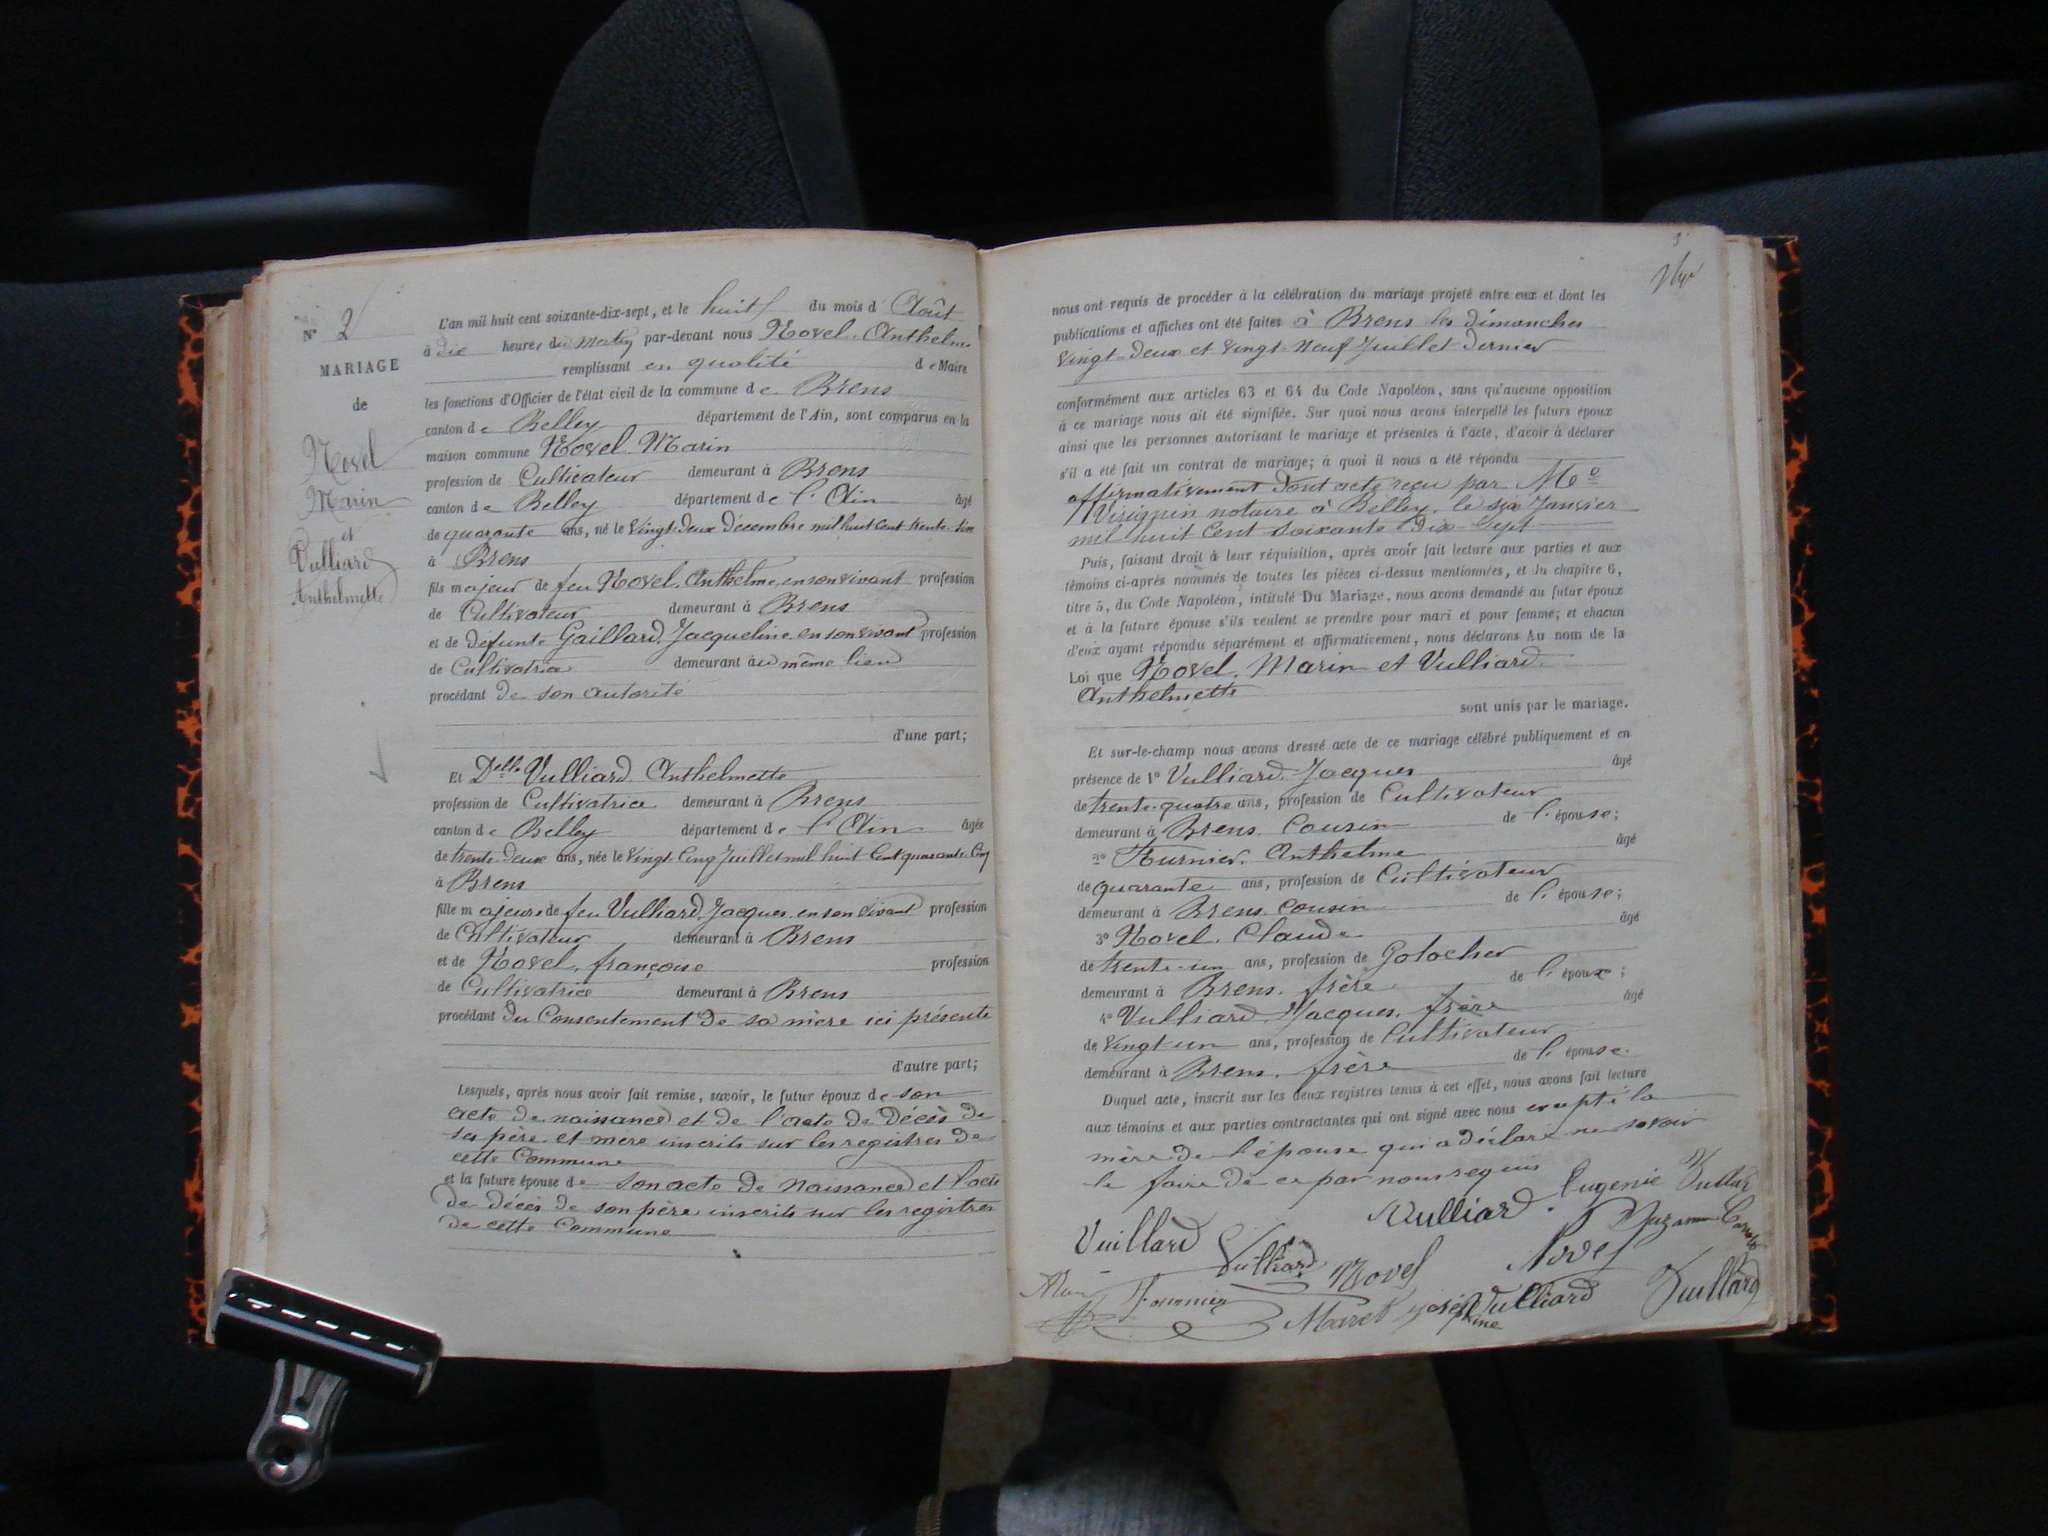 N° 2
MARIAGE
de
Novel
Marin
et
Vulliard
Anthelmette
L'an mil huit cent soixante-dix-sept, et le huit du mois d'Août
à dix heures du matin par-devant nous Novel Anthelme
remplissant en qualité de Maire
les fonctions d'Officier de l'état civil de la commune de Brens
canton de Belley département de l'Ain, sont comparus en la
maison commune Novel Marin
profession de Cultivateur demeurant à Brens
canton de Belley département de l'Ain âgé
de quarante ans, né le vingt-deux décembre mil huit cent trente six
à Brens
fils majeur de feu Novel, Anthelme, en son vivant profession
de Cultivateur demeurant à Brens
et de défunte Gaillard, Jacqueline en son vivant profession
de Cultivatrice demeurant au même lieu
procédant de son autorité
d'une part;
Et Delle Vulliard Anthelmette
profession de Cultivatrice demeurant à Brens
canton de Belley département de l'Ain âgée
de trente-deux ans, née le vingt Cinq Juillet mil huit Cent quarante Cinq
à Brens
fille majeure de feu Vulliard, Jacques en son vivant profession
de Cultivateur demeurant à Brens
et de Novel, françoise profession
de Cultivatrice demeurant à Brens
procédant du Consentement de sa mère ici présente
d'autre part;
Lesquels, après nous avoir fait remise, savoir, le futur époux de son
acte de naissance et de l'acte de Décès de
ses père et mère inscrits sur les registres de
cette Commune
et la future épouse de son acte de Naissance et l'acte
de décès de son père inscrits sur les registres
de cette Commune
nous ont requis de procéder à la célébration du mariage projeté entre eux et dont les
publications et affiches ont été faites à Brens les dimanches
vingt-deux et vingt-neuf Juillet dernier
conformément aux articles 63 et 64 du Code Napoléon, sans qu'aucune opposition
à ce mariage nous ait été signifiée. Sur quoi nous avons interpellé les futurs époux
ainsi que les personnes autorisant le mariage et présentes à l'acte, d'avoir à déclarer
s'il a été fait un contrat de mariage; à quoi il nous a été répondu
affirmativement dont acte reçu par Me
notaire à Belley, le six Janvier
mil huit Cent soixante Dix-Sept
Puis, faisant droit à leur réquisition, après avoir fait lecture aux parties et aux
témoins ci-après nommés de toutes les pièces ci-dessus mentionnées, et du chapitre 6,
titre 5, du Code Napoléon, intitulé Du Mariage, nous avons demandé au futur époux
et à la future épouse s'ils veulent se prendre pour mari et pour femme; et chacun
d'eux ayant répondu séparément et affirmativement, nous déclarons Au nom de la
Loi que Novel, Marin et Vulliard
Anthelmette
sont unis par le mariage.
Et sur-le-champ nous avons dressé acte de ce mariage célébré publiquement et en
présence de 1° Vulliard Jacques âgé
de trente-quatre ans, profession de Cultivateur
demeurant à Brens, Cousin de l'épouse;
2° Furnier, Anthelme âgé
de quarante ans, profession de Cultivateur
demeurant à Brens, cousin de l'épouse;
3° Novel, Claude âgé
de trente-un ans, profession de Galocher
demeurant à Brens, frère de l'époux;
4° Vulliard, Jacques, frère âgé
de vingt-un ans, profession de Cultivateur
demeurant à Brens, frère de l'épouse.
Duquel acte, inscrit sur les deux registres tenus à cet effet, nous avons fait lecture
aux témoins et aux parties contractantes qui ont signé avec nous excepté la
mère de l'épouse qui a déclaré ne savoir
le faire de ce par nous requis
Vulliard Eugenie Vulliard
Vuillard Vulliard Novel Novel Suzanne
Fournier Maret joséphine Vulliard Vuillard